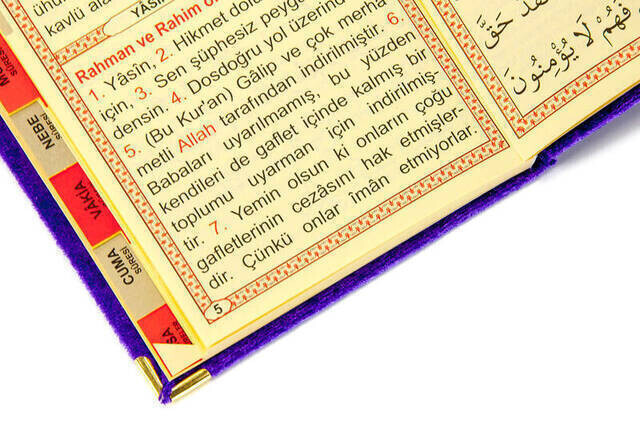 kavlü
YÂSÎN
Rahman ve Rahim
1. Yâsîn, 2. Hikmet
için, 3. Sen şüphesiz
densin. 4. Dosdoğru yol üzerinde
5. (Bu Kur'an) Gâlip ve çok merha-
metli Allah tarafından indirilmiştir. 6.
Babaları uyarılmamış, bu yüzden
kendileri de gaflet içinde kalmış bir
toplumu uyarman için indirilmiş-
tir. 7. Yemin olsun ki onların çoğu
gafletlerinin cezâsını hak etmişler-
dir. Çünkü onlar imân etmiyorlar.
5
NEBE
SÛRESİ
VÂKIA
CUMA
SÛRESİ
حَقَّ
فَهُمْ لَا يُؤْمِنُونَ